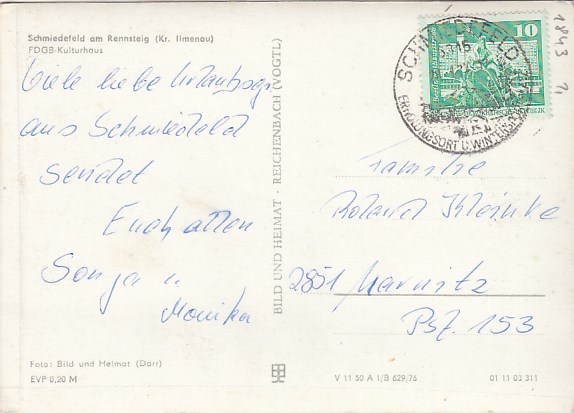 Schmiedefeld am Rennsteig (Kr. Ilmenau)
FDGB-Kulturhaus
Viele liebe Urlaubsgr.
aus Schmiedefeld
sendet
Euch allen
Sonja u.
Monika
Foto: Bild und Heimat (Darr)
EVP 0,20 M
BILD UND HEIMAT · REICHENBACH (VOGTL)
10
SCHMIEDEFELD
ERHOLUNGSORT U. WINTERSP
1843
71
Familie
Roland Kleinke
2851 Marnitz
Psf. 153
V 11 50 A 1/B 629/76
01 11 03 311